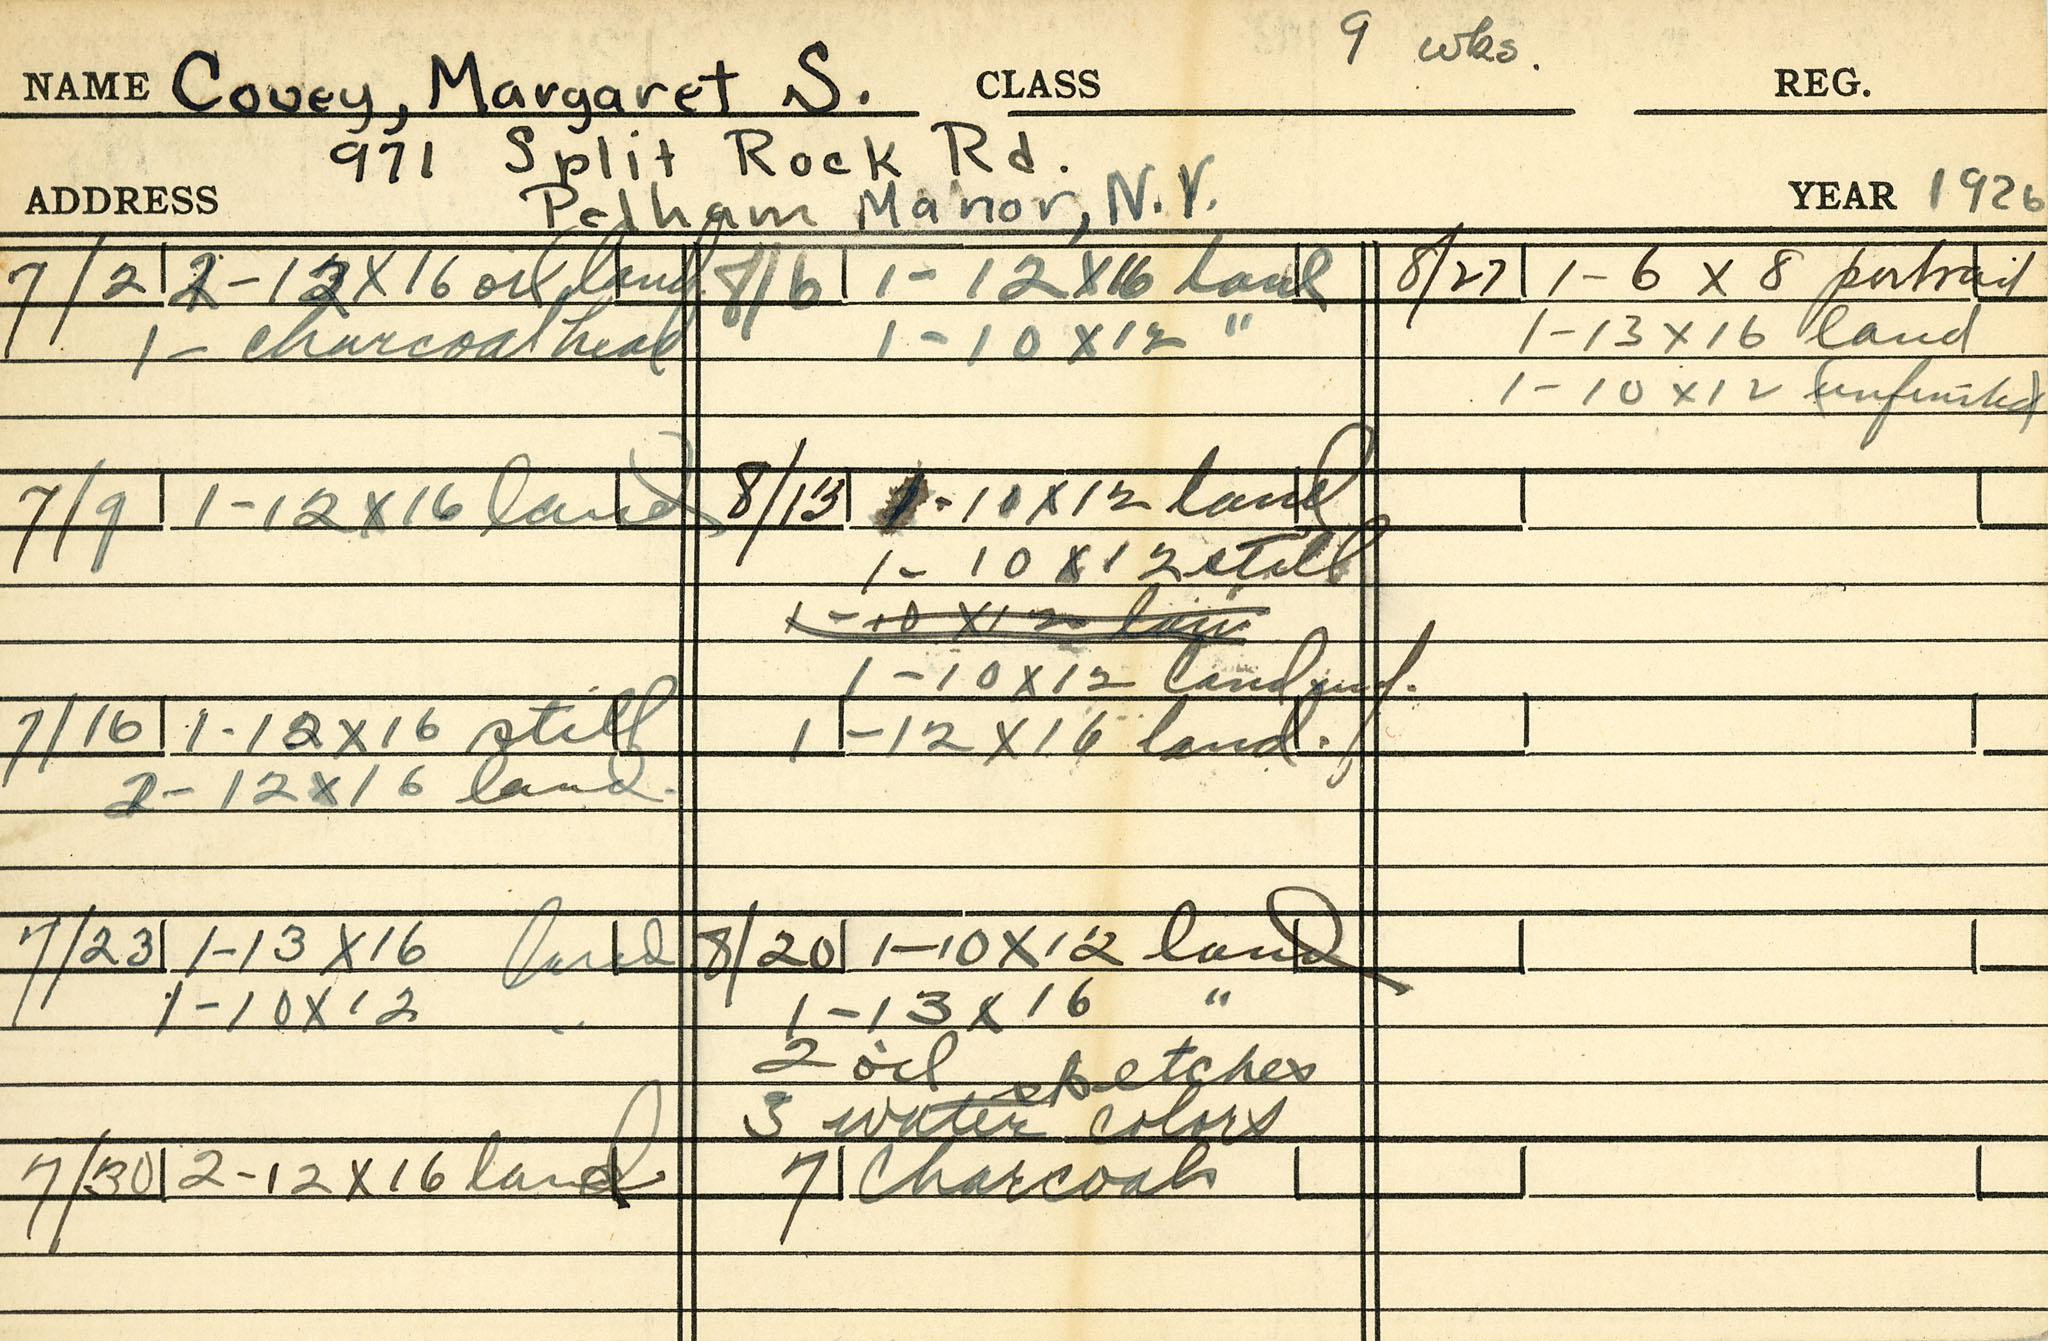 9 wks.
NAME Covey, Margaret S. CLASS REG.
971 Split Rock Rd.
ADDRESS Pelham Manor, N.Y. YEAR 1926
7/2 2-12X16 oil land
1- charcoal head
7/9 1-12X16 land
7/16 1-12X16 still
2-12X16 land.
7/23 1-13X16 land
1-10X12 "
7/30 2-12X16 land
8/6 1-12X16 land
1-10X12 "
8/13 1-10X12 land
1-10X12 still
1-10X12 lan
1-10X12 land
1-12X16 land.
8/20 1-10X12 land
1-13X16 "
2 oil sketches
3 water colors
7 charcoals
8/27 1-6 X 8 portrait
1-13X16 land
1-10X12 (unfinished)